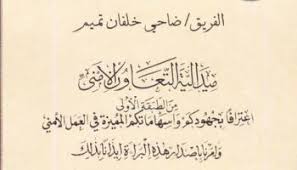 الفريق/ ضاحي خلفان تميم
ميدالية التعاون الأمني
من الطبقة الأولى
اعترافًا بجهودكم وإسهاماتكم المميزة في العمل الأمني
وأمرنا بإصدار هذه البراءة إيذانًا بذلك